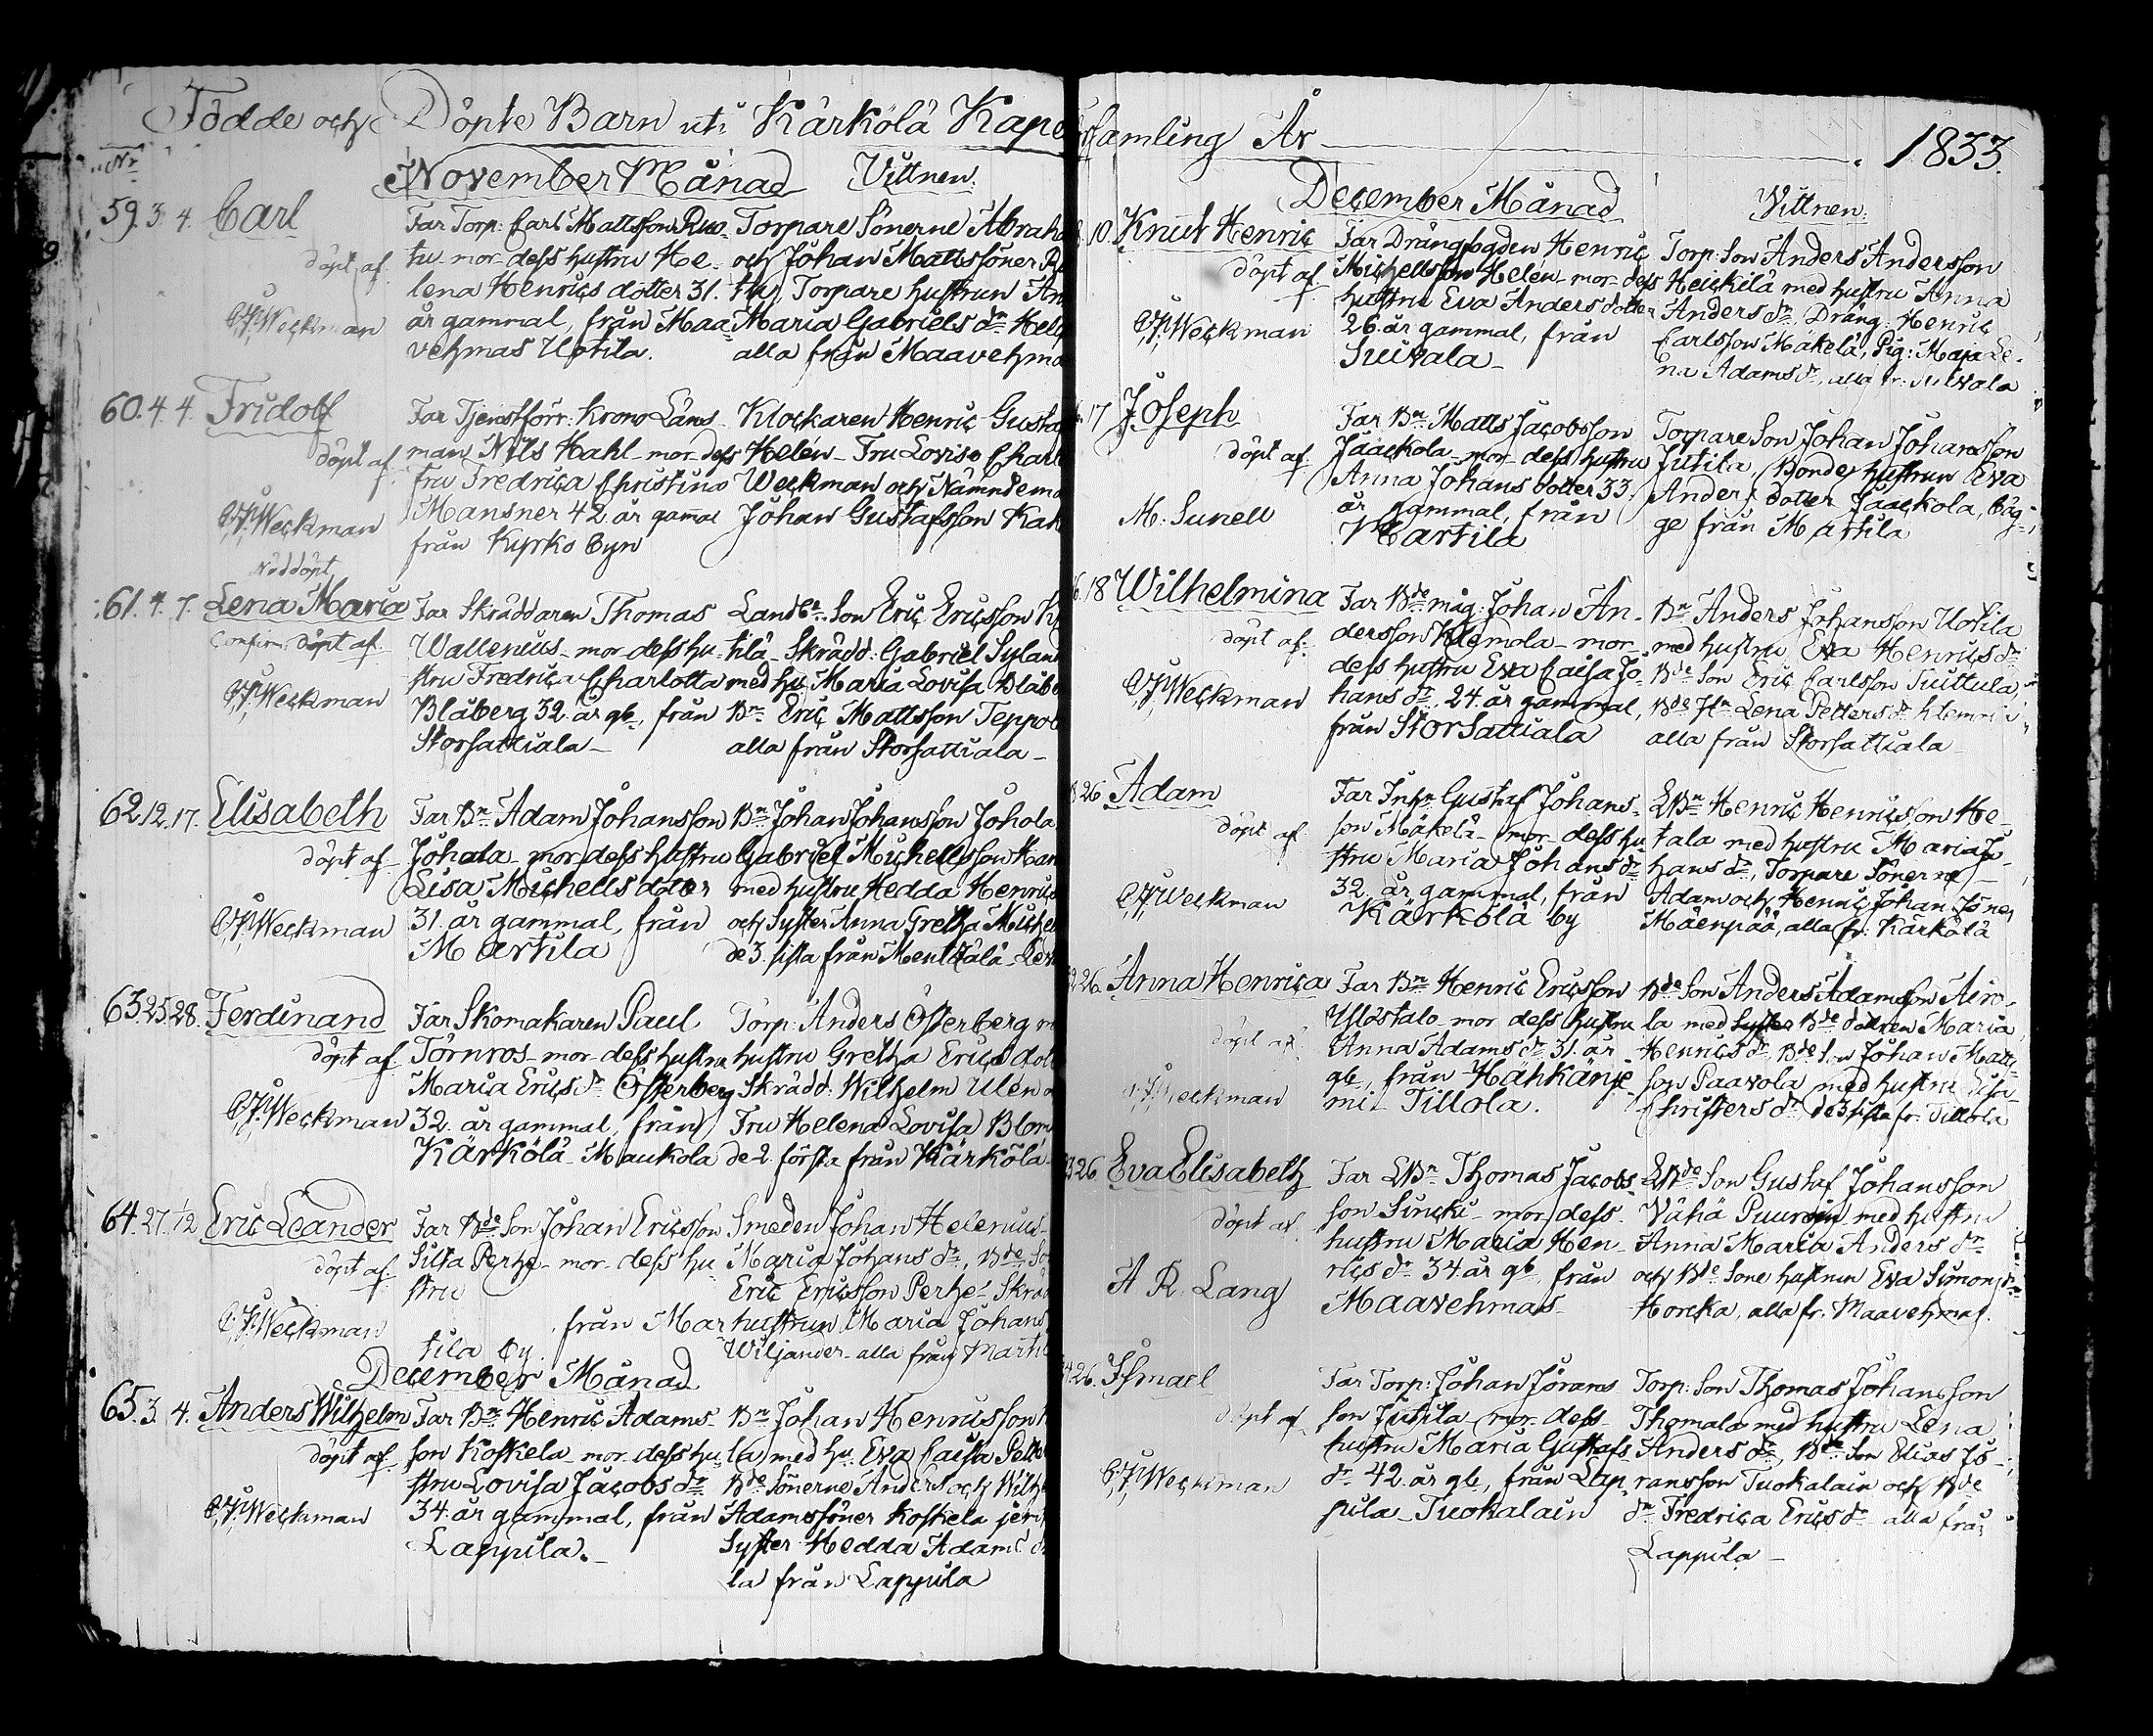 Födde och Döpte Barn uti Kärkölä Kape
Nr
November Månad Vittnen:
59. 3. 4. Carl
döpt af
C.J. Weckman
Far Torp: Carl Mattsson Ruo-
tu - mor dess hustru He-
lena Henrics dotter 31.
år gammal, från Maa-
vehmas Uotila.
Torpare Sönerne Abraha
och Johan Mattssöner
Torpare hustrun An
Maria Gabriels dr Hele
alla från Maavehma
60. 4. 4. Fridolf
döpt af
C.J. Weckman
Far Tjenstförr: Krono Läns-
man Nils Hahl - mor dess
fru Fredrica Christina
Mansner 42. år gamal
från Kyrko byn
Klockaren Henric Gustaf
Helén - Fru Lovisa Charl
Weckman och Nämndema
Johan Gustafsson
61. 4. 7. Nöddöpt
Lena Maria
Confirm: döpt af
C.J. Weckman
Far Skräddaren Thomas
Wallenius - mor dess hu-
stru Fredrica Charlotta
Blåberg 32. år gl, från
Storsattiala -
Landb: Son Eric Ericsson
tilä - Skrädd: Gabriel Sylan
med hu Maria Lovisa Blåbe
Bn Eric Mattsson Teppo
alla från Storsattiala -
62. 12. 17. Elisabeth
döpt af
C.J. Weckman
Far Bn Adam Johansson
Johala - mor dess hustru
Lisa Michells dotter
31. år gammal, från
Martila
Bn Johan Johansson Johola
Gabriel Michellsson
med hustru Hedda Henrics
och Syster Anna Gretha Michel
de 3. sista från
63. 25. 28. Ferdinand
döpt af
C.J. Weckman
Far Skomakaren Paul
Törnros - mor dess hustru
Maria Erics dr Österberg
32. år gammal, från
Kärkölä - Maukola
Torp: Anders Österberg m
hustru Gretha Erics dott
Skrädd: Wilhelm Ulen o
Fru Helena Lovisa Blom
de 2. första från Kärkölä
64. 27. 1/12 Eric Leander
döpt af
C.J. Weckman
Far Bde Son Johan Ericsson
Silta Perhe - mor dess hu-
stru
från Mar
tila by.
Smeden Johan Helenius
Maria Johans dr, Bde So
Eric Ericsson Perhe - Skräd
hustrun Maria Johans
Wiljander - alla från Martil
December Månad
65. 3. 4. Anders Wilhelm
döpt af
C.J. Weckman
Far Bn Henric Adams-
son Koskela - mor dess hu-
stru Lovisa Jacobs dr
34. år gammal, från
Lappila. -
Bn Johan Henricsson
la med hu. Eva Caisa Pett
Bde Sönerne Anders och Wilh
Adamssöner Koskela jem
Syster Hedda Adams d
la från Lappila
samling År - 1833.
December Månad Vittnen:
10. Knut Henric
döpt af
C.J. Weckman
Far Drängfogden Henric
Michellsson Helen - mor dess
hustru Eva Anders dotter
26. år gammal, från
Suivala -
Torp: Son Anders Andersson
Heickilä med hustru Anna
Anders dr, Dräng: Henric
Carlsson Mäkelä, Pig: Maja Le-
na Adams dr, alla fr: Suivala
17 Joseph
döpt af
M. Sunell
Far Bn Matts Jacobsson
Jaackola - mor dess hustru
Anna Johans dotter 33.
år gammal, från
Martila
Torpare Son Johan Johansson
Jutila, Bonde hustrun Eva
Anders dotter Jaackola, bäg-
ge från Martila
18 Wilhelmina
döpt af
C.J. Weckman
Far Bde måg: Johan An-
dersson Klemola - mor
dess hustru Eva Caisa Jo-
hans dr 24. år gammal,
från Storsattiala
Bn Anders Johansson Uotila
med hustru Eva Henrics dr
Bde Son Eric Carlsson Tuittula,
Bde Hn Lena Petters dr
alla från Storsattiala
26. Adam
döpt af
C.J. Weckman
Far Inhn Gustaf Johans-
son Mäkelä - mor dess hu-
stru Maria Johans dr
32. år gammal, från
Kärkölä by
LBn Henric Henricsson He-
tala med hustru Maria Jo-
hans dr, Torpare Sönerne
Adam och Henric Johan Söner
Mäenpää, alla fr: Kärkölä
26. Anna Henrica
döpt af
C.J. Weckman
Far Bn Henric Ericsson
Ylöstalo - mor dess hustru
Anna Adams dr 31. år
gl, från Hähkänje-
mi - Tillola.
Bde Son Anders Adamsson Airo-
la med Bde dottren Maria
Henrics dr Bde Son Johan Matts-
son Paavola med hustru Lisa
Christers dr, de 3 sista fr: Tillola
26. Eva Elisabeth
döpt af
A R. Lang
Far LBn Thomas Jacobs-
son Sincki - mor dess
hustru Maria Hen-
rics dr 34. år gl, från
Maavehmas -
LBde Son Gustaf Johansson
Vähä med hustru
Anna Maria Anders dr
och Bde Sone hustrun Eva Simons dr
Horcka, alla fr. Maavehmas.
26. Ismael
döpt af
C.J. Weckman
Far Torp: Johan Jörans
son Jutila - mor dess
hustru Maria Gustafs
dr 42. år gl, från Lap
pila - Tuokalain
Torp: Son Thomas Johansson
Thomala med hustru Lena
Anders dr, Bde Son Elias Jö-
ransson Tuokalain och Bde
dr Fredrica Erics dr alla från
Lappila -